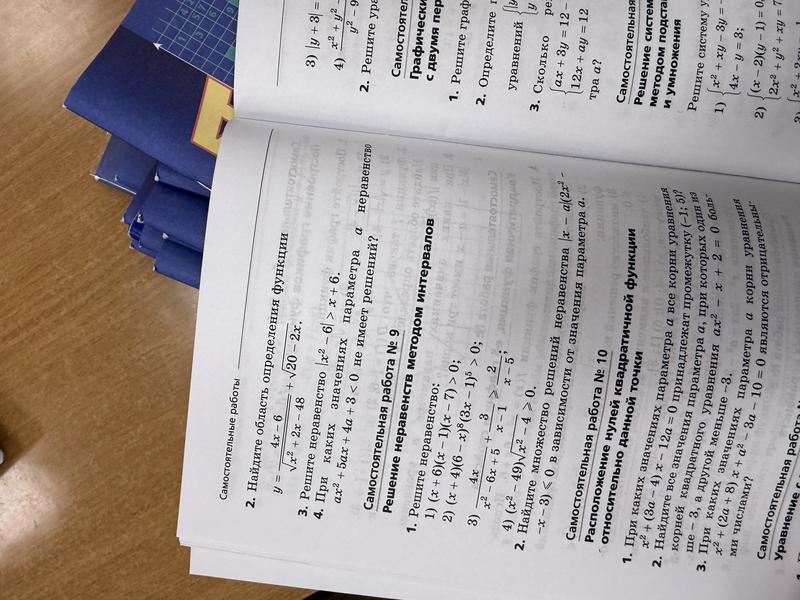 Самостоятельные работы
2. Найдите область определения функции
y = (4x - 6)/√(x² + 2x - 48) + √(20 - 2x).
3. Решите неравенство |x² - 6| > x + 6.
4. При каких значениях параметра a неравенство
ax² + 5ax + 4a + 3 < 0 не имеет решений?
Самостоятельная работа № 9
Решение неравенств методом интервалов
1. Решите неравенство:
1) (x + 6)(x - 1)(x - 7) > 0;
2) (x + 4)(6 - x)⁸(3x - 1)⁵ > 0;
3) 4x/(x² - 6x + 5) + 3/(x - 1) ⩾ 2/(x - 5);
4) (x² - 49)√(x² - 4) ⩾ 0.
2. Найдите множество решений неравенства |x - a|(2x² -
- x - 3) ⩽ 0 в зависимости от значения параметра a.
Самостоятельная работа № 10
Расположение нулей квадратичной функции
относительно данной точки
1. При каких значениях параметра a все корни уравнения
x² + (3a - 4) x - 12a = 0 принадлежат промежутку (-1; 5)?
2. Найдите все значения параметра a, при которых один из
корней квадратного уравнения ax² - x + 2 = 0 боль-
ше - 3, а другой меньше -3.
3. При каких значениях параметра a корни уравнения
x² + (2a + 8) x + a² - 3a - 10 = 0 являются отрицательны-
ми числами?
Самостоятельная работа
Уравнение с
3) |y + 3| =
4) x² + y²
y² - 9
2. Решите ура
Самостоятел
Графически
с двумя пер
1. Решите граф
2. Определите
уравнений
3. Сколько ре
{ax + 3y = 12 -
{12x + ay = 12
тра a?
Самостоятельная
Решение систем
методом подстан
и умножения
Решите систему у
1) {x² + xy - 3y =
{4x - y = 3;
2) {(x - 2)(y - 1) = 0,
{2x² + y² + xy = 7